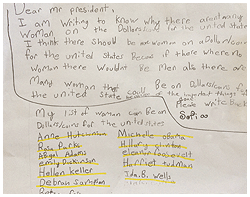 Dear mr president,
I am writing to know why there aren't many
woman on the Dollars/coins for the united states
I think there should be more woman on a Dollar/coin
for the united states because if there where no
woman there wouldnt be men also there are
Many woman that could be on Dollars/coins for
the united states because of the important things
Please write Back
Sofia
My list of woman can Be on
Dollars/coins for the united states
Anne Hutchinton
Rosa Parks
Abigal Adams
emily Dickinson
Hellen keller
Debrah Sampson
Michelle obama
Hillary clinton
eleanor roosevelt
Harriet tudman
Ida.B. wells